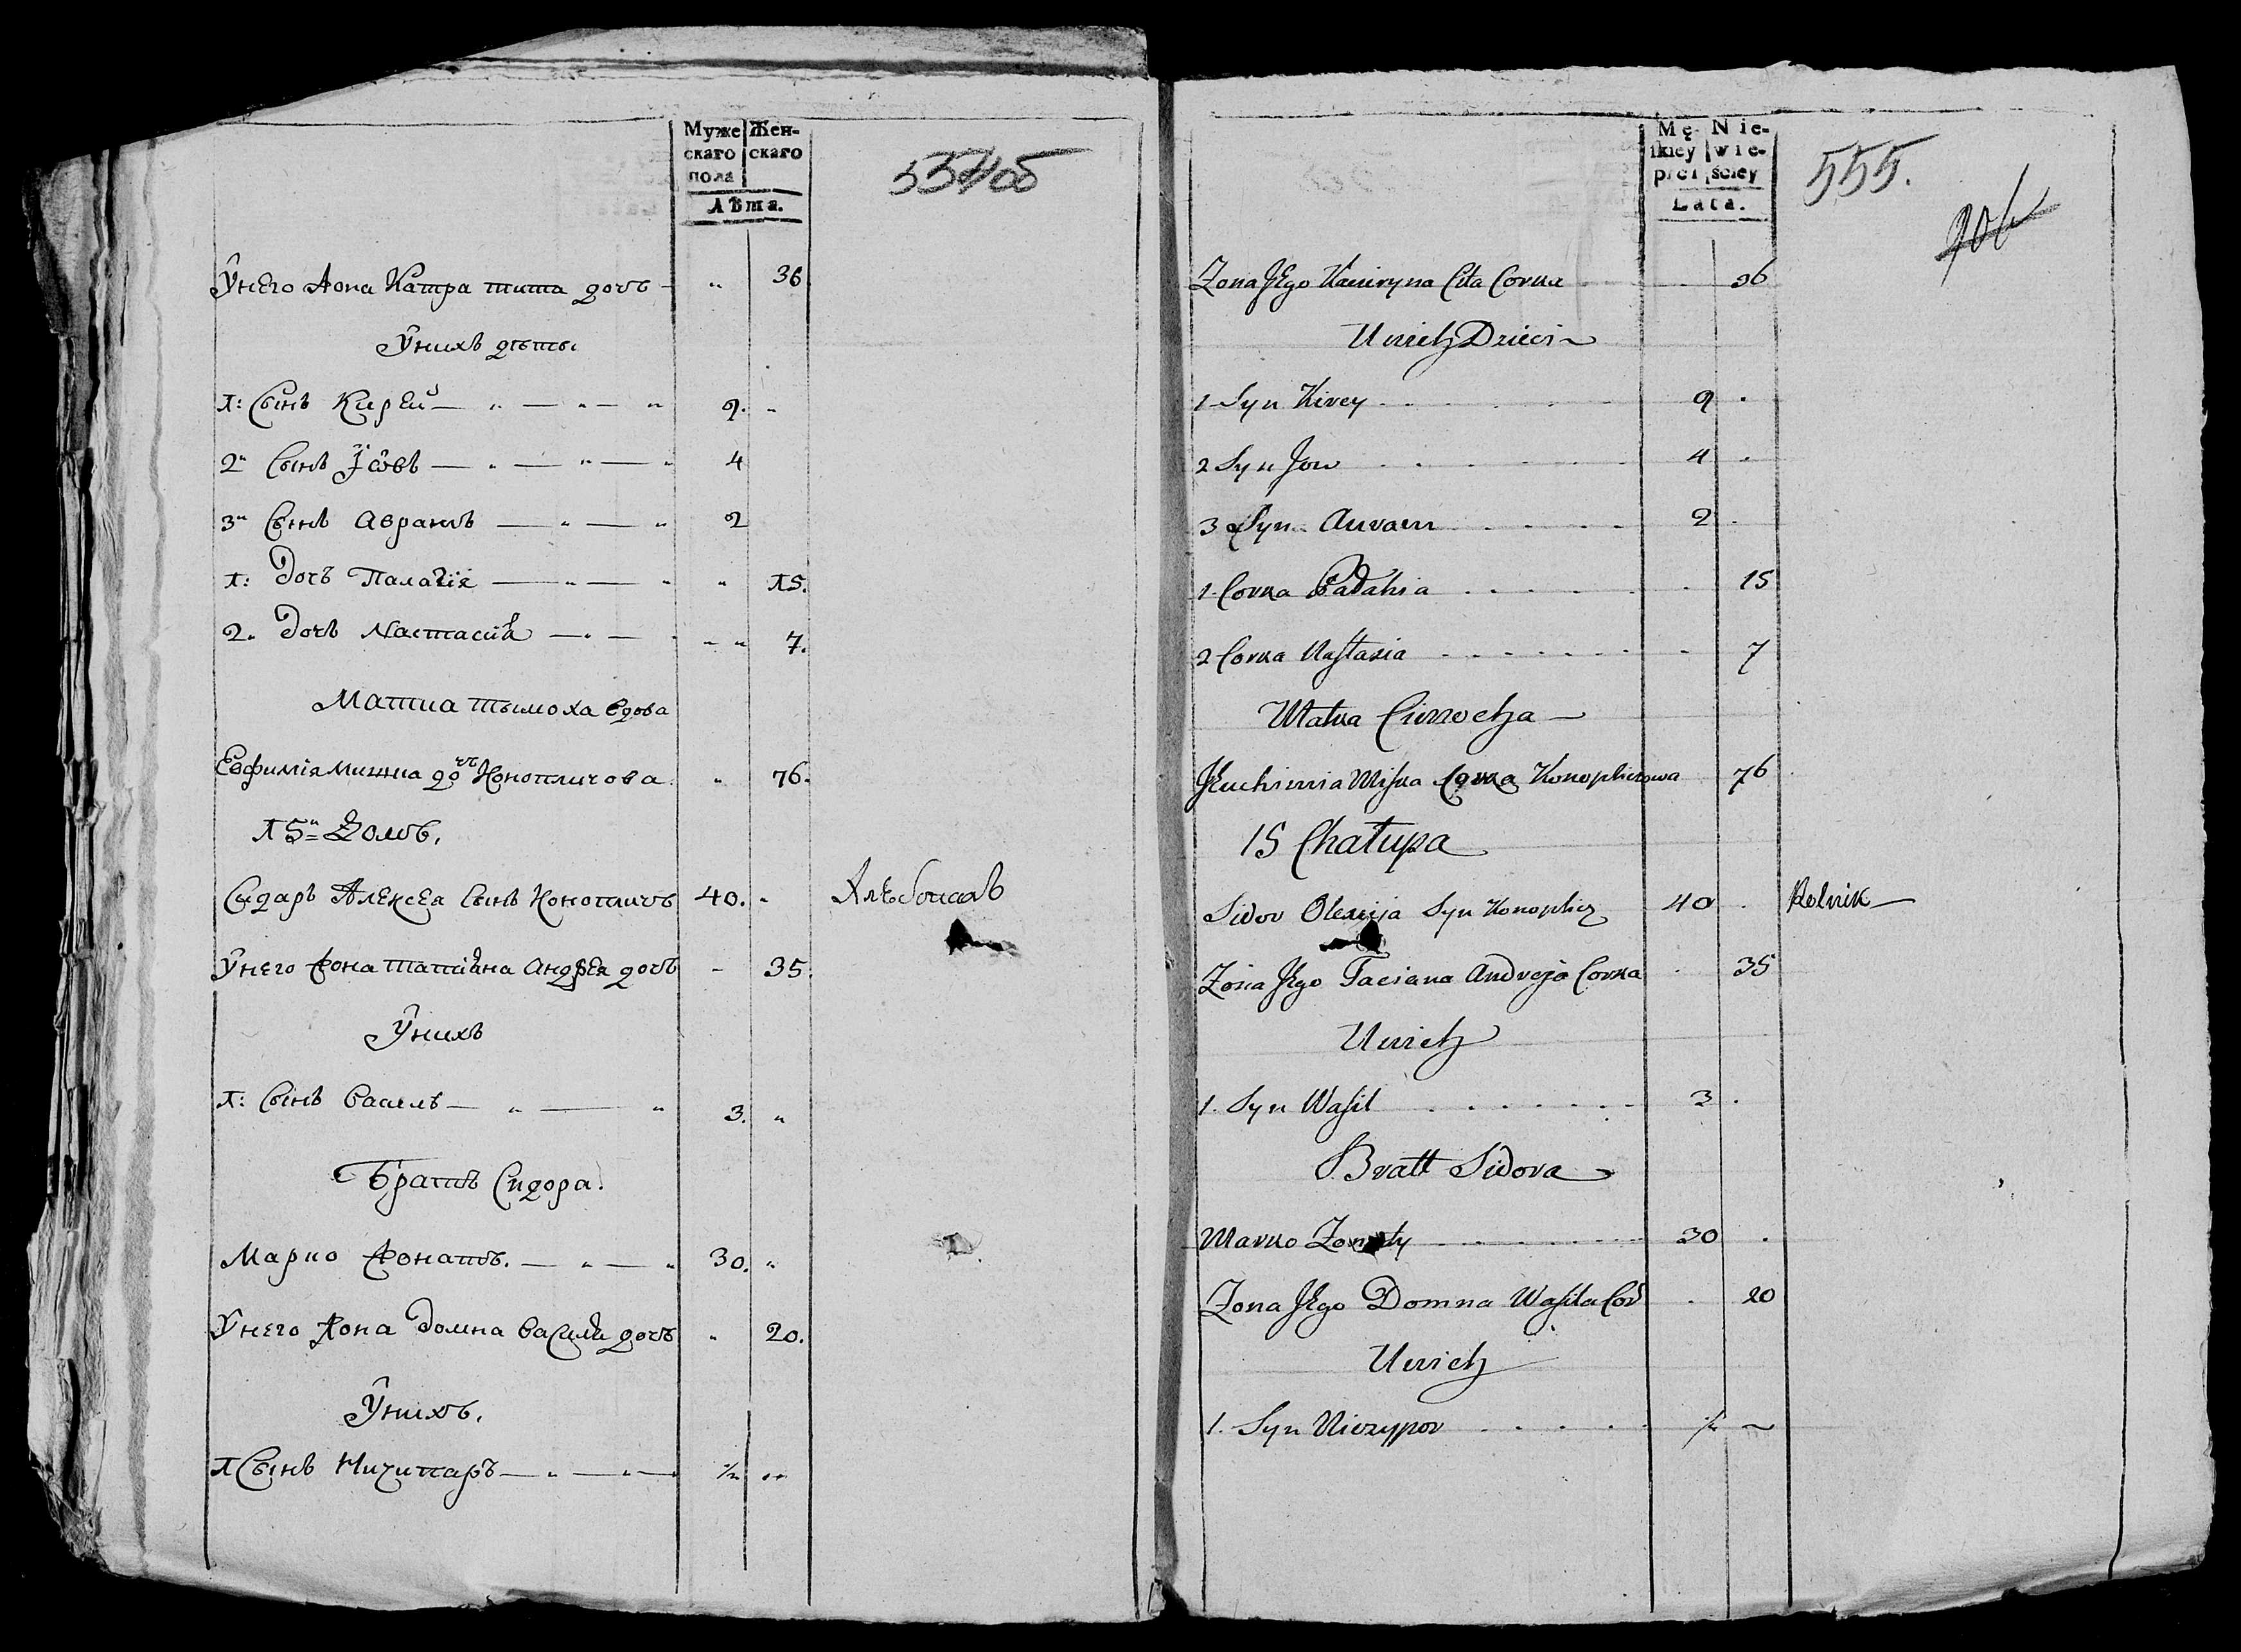 Муже Жен-
скаго скаго
пола
Лѣта.
554об
Унего Жона Катра тита дочъ 36
Унихъ дѣты
1: Сынъ Кирей 9.
2 Сынъ Іовъ 4
3 Сынъ Аврамъ 2
1: Дочъ Палагія 15.
2. Дочъ Настасия 7.
Матка тымоха вдова
Евфимія Мишка дочъ Конопличова 76.
15 Домъ.
Сидаръ Алексея Сынъ Конопличъ 40. Хлѣбопашъ
Унего Жона Татияна Андрея дочъ 35.
Унихъ
1: Сынъ Василъ 3.
Братъ Сидора.
Марко Жонатъ. 30.
Унего Жона Домна Василя дочъ 20.
Унихъ.
1 Сынъ Ничипаръ ½
Mę- Nie-
skiey wie-
płci ściey
Lata.
555.
Zona Jego Kaciryna Cita Corka 36
Unich Dzieci
1 Syn Kirey 9
2 Syn Jow 4
3 Syn Auram 2
1 Corka Pałahia 15
2 Corka Nastazia 7
Matka Cimocha
Jeuchimia Miska Corka Konopliczowa 76
15 Chałupa
Sidor Olexieja Syn Konoplicz 40 Rolnik
Zona Jego Taciana Andreja Corka 35
Unich
1. Syn Wasil 3
Bratt Sidora
Marko Zonaty 30
Zona Jego Domna Wasila Cor 20
Unich
1. Syn Niczypor ½